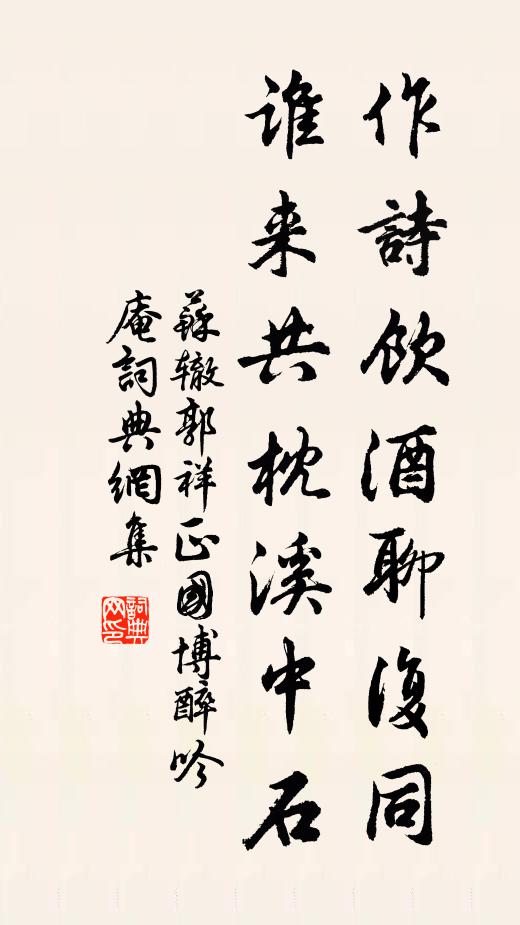 作詩飲酒聊復同
誰来共枕溪中石
蘇轍郭祥正國博醉吟
庵詞典網集
詞典
网印